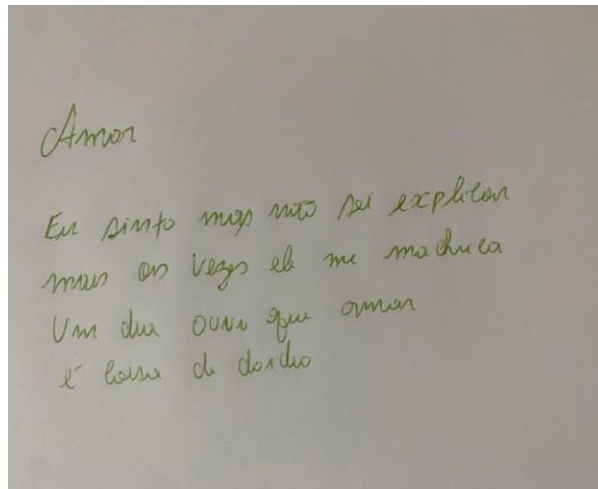 Amor
Eu sinto mas não sei explicar
mais as vezes ele me machuca
Um dia ouvi que amar
é coisa de doido